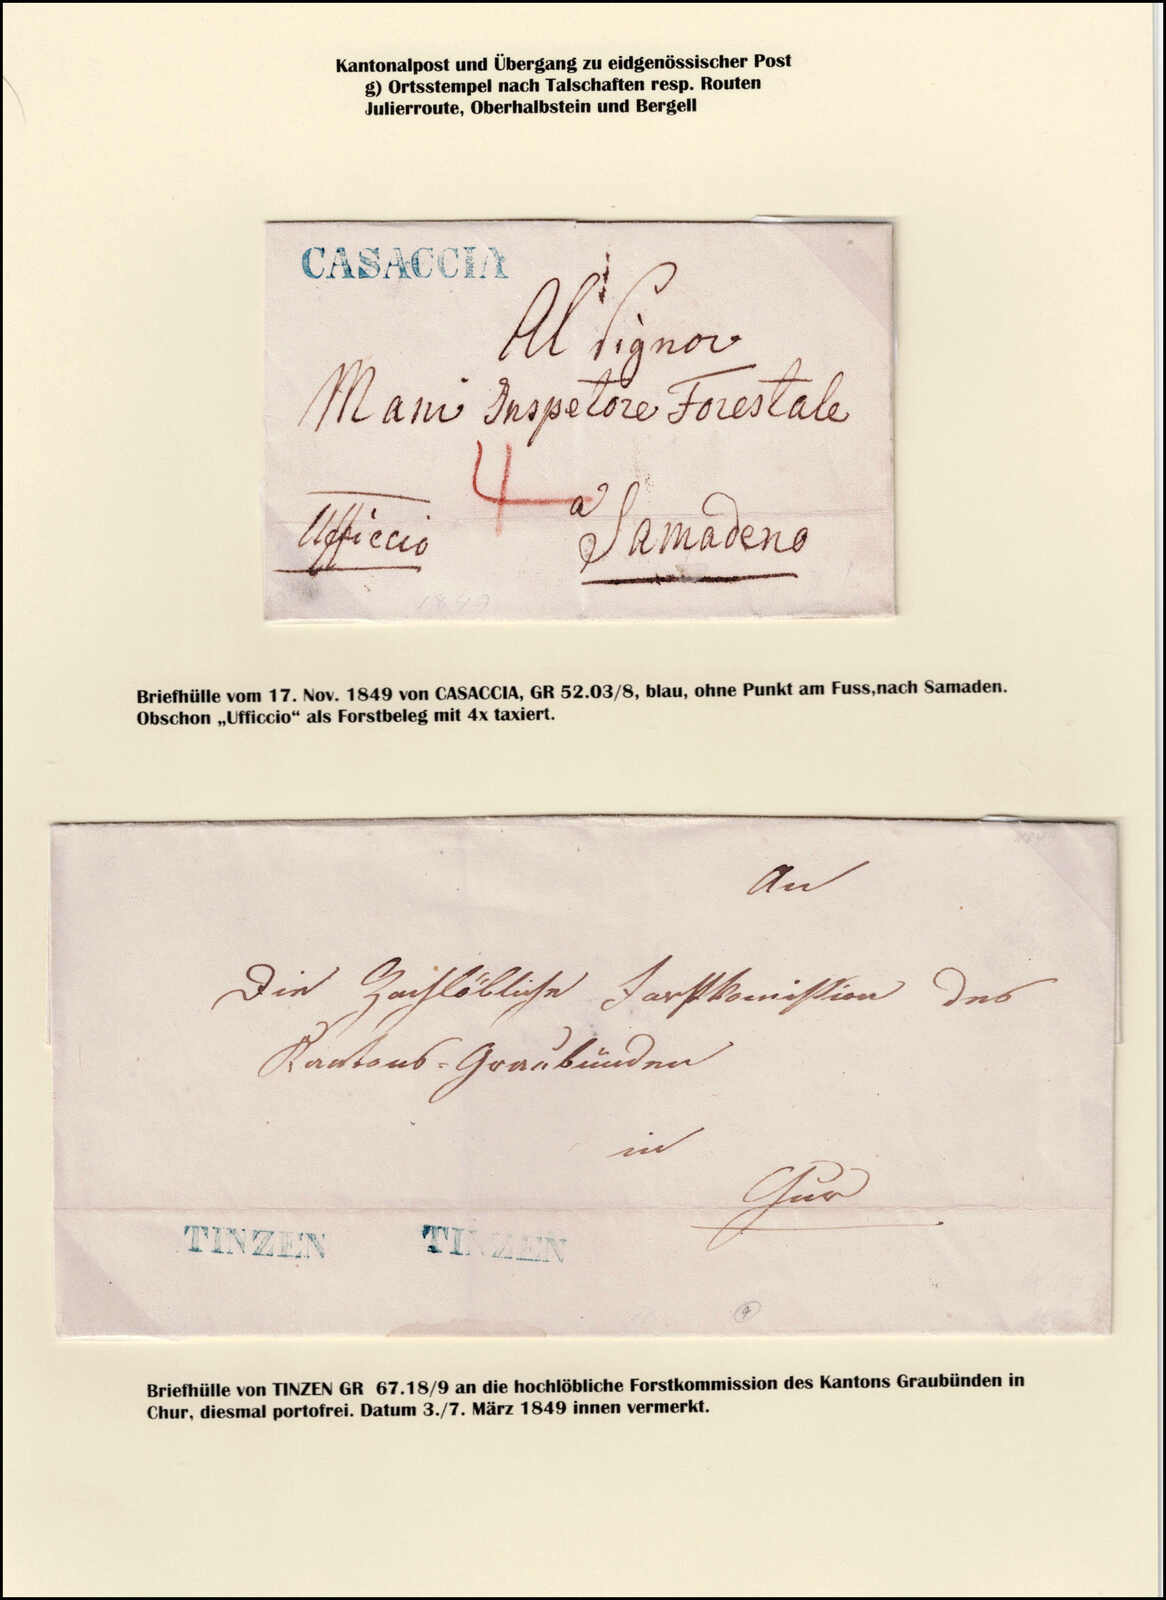 Kantonalpost und Übergang zu eidgenössischer Post
g) Ortsstempel nach Talschaften resp. Routen
Julierroute, Oberhalbstein und Bergell
CASACCIA
Al Signor
Mani Inspetore Forestale
4
a
Ufficcio
Samadeno
1849
Briefhülle vom 17. Nov. 1849 von CASACCIA, GR 52.03/8, blau, ohne Punkt am Fuss,nach Samaden.
Obschon „Ufficcio“ als Forstbeleg mit 4x taxiert.
An
Die Hochlöbliche Forstkomission des
Kantons=Graubünden
in
Chur
TINZEN TINZEN
Briefhülle von TINZEN GR 67.18/9 an die hochlöbliche Forstkommission des Kantons Graubünden in
Chur, diesmal portofrei. Datum 3./7. März 1849 innen vermerkt.